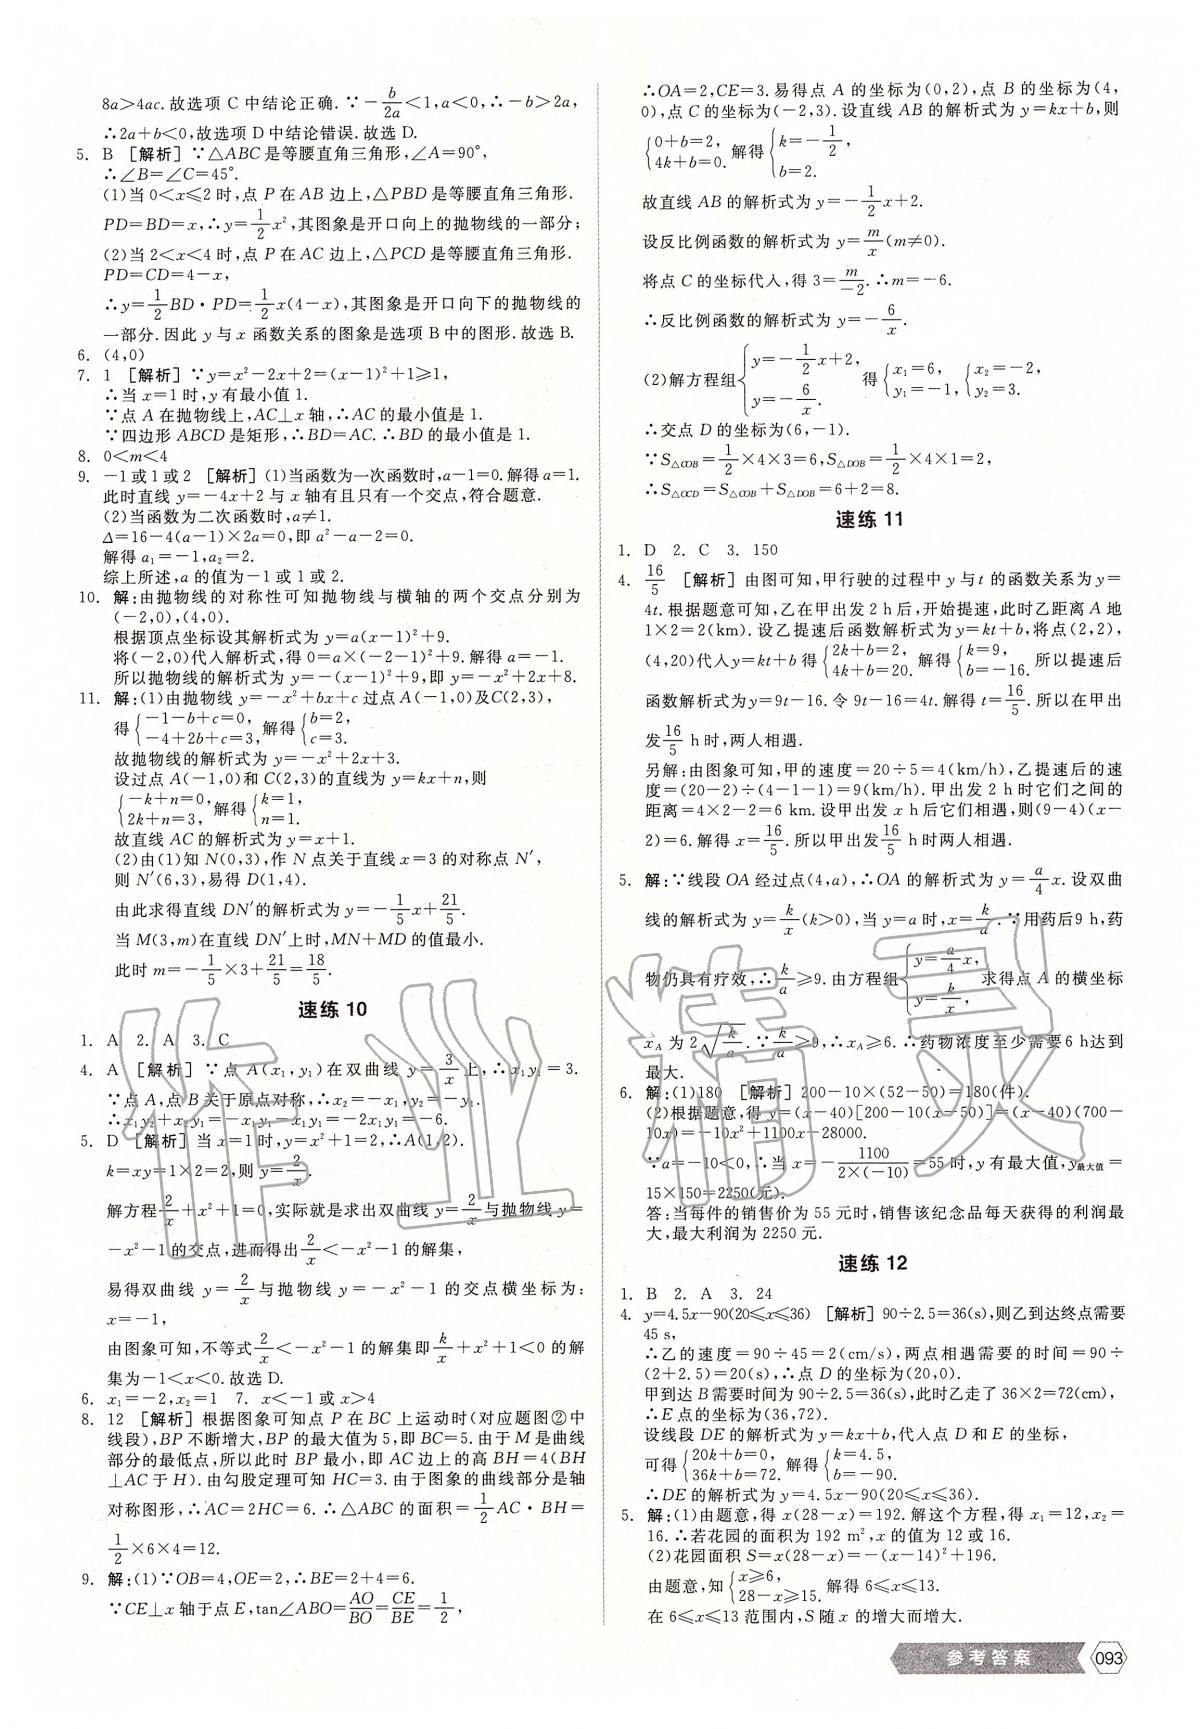 8a>4ac.故选项 C 中结论正确.∵-b/2a<1,a<0,∴-b>2a,
∴2a+b<0,故选项 D 中结论错误.故选 D.
5. B [解析]∵△ABC 是等腰直角三角形,∠A=90°,
∴∠B=∠C=45°.
(1)当 0<x⩽2 时,点 P 在 AB 边上,△PBD 是等腰直角三角形.
PD=BD=x,∴y=1/2x²,其图象是开口向上的抛物线的一部分;
(2)当 2<x<4 时,点 P 在 AC 边上,△PCD 是等腰直角三角形.
PD=CD=4-x,
∴y=1/2BD·PD=1/2x(4-x),其图象是开口向下的抛物线的
一部分.因此 y 与 x 函数关系的图象是选项 B 中的图形.故选 B.
6. (4,0)
7. 1 [解析]∵y=x²-2x+2=(x-1)²+1⩾1,
∴当 x=1 时,y 有最小值 1.
∵点 A 在抛物线上,AC⊥x 轴,∴AC 的最小值是 1.
∵四边形 ABCD 是矩形,∴BD=AC.∴BD 的最小值是 1.
8. 0<m<4
9. -1 或 1 或 2 [解析](1)当函数为一次函数时,a-1=0.解得 a=1.
此时直线 y=-4x+2 与 x 轴有且只有一个交点,符合题意.
(2)当函数为二次函数时,a≠1.
Δ=16-4(a-1)×2a=0,即 a²-a-2=0.
解得 a₁=-1,a₂=2.
综上所述,a 的值为-1 或 1 或 2.
10. 解:由抛物线的对称性可知抛物线与横轴的两个交点分别为
(-2,0),(4,0).
根据顶点坐标设其解析式为 y=a(x-1)²+9.
将(-2,0)代入解析式,得 0=a×(-2-1)²+9.解得 a=-1.
所以抛物线的解析式为 y=-(x-1)²+9,即 y=-x²+2x+8.
11. 解:(1)由抛物线 y=-x²+bx+c 过点 A(-1,0)及C(2,3),
得{-1-b+c=0, -4+2b+c=3,解得{b=2, c=3.
故抛物线的解析式为 y=-x²+2x+3.
设过点 A(-1,0)和 C(2,3)的直线为 y=kx+n,则
{-k+n=0, 2k+n=3,解得{k=1, n=1.
故直线 AC 的解析式为 y=x+1.
(2)由(1)知 N(0,3),作 N 点关于直线 x=3 的对称点 N′,
则 N′(6,3),易得 D(1,4).
由此求得直线 DN′的解析式为 y=-1/5x+21/5.
当 M(3,m)在直线 DN′上时,MN+MD 的值最小.
此时 m=-1/5×3+21/5=18/5.
速练 10
1. A 2. A 3. C
4. A [解析]∵点 A(x₁,y₁)在双曲线 y=3/x上,∴x₁y₁=3.
∵点 A,点 B 关于原点对称,∴x₂=-x₁,y₂=-y₁.
∴x₁y₂+x₂y₁=-x₁y₁-x₁y₁=-2x₁y₁=-6.
5. D [解析]当 x=1 时,y=x²+1=2,∴A(1,2).
k=xy=1×2=2,则 y=2/x.
解方程2/x+x²+1=0,实际就是求出双曲线 y=2/x与抛物线 y=
-x²-1 的交点,进而得出2/x<-x²-1 的解集,
易得双曲线 y=2/x与抛物线 y=-x²-1 的交点横坐标为:
x=-1,
由图象可知,不等式2/x<-x²-1 的解集即k/x+x²+1<0 的解
集为-1<x<0.故选 D.
6. x₁=-2,x₂=1 7. x<-1 或 x>4
8. 12 [解析]根据图象可知点 P 在 BC 上运动时(对应题图②中
线段),BP 不断增大,BP 的最大值为 5,即 BC=5.由于 M 是曲线
部分的最低点,所以此时 BP 最小,即 AC 边上的高 BH=4(BH
⊥AC 于 H).由勾股定理可知 HC=3.由于图象的曲线部分是轴
对称图形,∴AC=2HC=6.∴△ABC 的面积=1/2AC·BH=
1/2×6×4=12.
9. 解:(1)∵OB=4,OE=2,∴BE=2+4=6.
∵CE⊥x 轴于点 E,tan∠ABO=AO/BO=CE/BE=1/2,
∴OA=2,CE=3.易得点 A 的坐标为(0,2),点 B 的坐标为(4,
0),点 C 的坐标为(-2,3).设直线 AB 的解析式为 y=kx+b,则
{0+b=2, 4k+b=0.解得{k=-1/2, b=2.
故直线 AB 的解析式为 y=-1/2x+2.
设反比例函数的解析式为 y=m/x(m≠0).
将点 C 的坐标代入,得 3=m/-2.∴m=-6.
∴反比例函数的解析式为 y=-6/x.
(2)解方程组{y=-1/2x+2, y=-6/x.得{x₁=6, y₁=-1,{x₂=-2, y₂=3.
∴交点 D 的坐标为(6,-1).
∵S△COB=1/2×4×3=6,S△DOB=1/2×4×1=2,
∴S△OCD=S△COB+S△DOB=6+2=8.
速练 11
1. D 2. C 3. 150
4. 16/5 [解析]由图可知,甲行驶的过程中 y 与 t 的函数关系为 y=
4t.根据题意可知,乙在甲出发 2 h 后,开始提速,此时乙距离 A 地
1×2=2(km).设乙提速后函数解析式为y=kt+b,将点(2,2),
(4,20)代入y=kt+b 得{2k+b=2, 4k+b=20.解得{k=9, b=-16.所以提速后
函数解析式为y=9t-16.令 9t-16=4t.解得 t=16/5.所以在甲出
发16/5 h 时,两人相遇.
另解:由图象可知,甲的速度=20÷5=4(km/h),乙提速后的速
度=(20-2)÷(4-1-1)=9(km/h).甲出发 2 h 时它们之间的
距离=4×2-2=6 km.设甲出发 x h 后它们相遇,则(9-4)(x-
2)=6.解得 x=16/5.所以甲出发16/5 h 时两人相遇.
5. 解:∵线段 OA 经过点(4,a),∴OA 的解析式为 y=a/4x.设双曲
线的解析式为 y=k/x(k>0),当 y=a 时,x=k/a.∵用药后9 h,药
物仍具有疗效,∴k/a⩾9.由方程组{y=a/4x, y=k/x,求得点 A 的横坐标
x_A 为 2√(k/a).∵k/a⩾9,∴x_A⩾6.∴药物浓度至少需要6 h达到
最大.
6. 解:(1)180 [解析]200-10×(52-50)=180(件).
(2)根据题意,得 y=(x-40)[200-10(x-50)]=(x-40)(700-
10x)=-10x²+1100x-28000.
∵a=-10<0,∴当 x=-1100/2×(-10)=55 时,y 有最大值,y最大值=
15×150=2250(元).
答:当每件的销售价为 55 元时,销售该纪念品每天获得的利润最
大,最大利润为 2250 元.
速练 12
1. B 2. A 3. 24
4. y=4.5x-90(20⩽x⩽36) [解析]90÷2.5=36(s),则乙到达终点需要
45 s,
∴乙的速度=90÷45=2(cm/s),两点相遇需要的时间=90÷
(2+2.5)=20(s),∴点 D 的坐标为(20,0).
甲到达 B 需要时间为 90÷2.5=36(s),此时乙走了 36×2=72(cm),
∴E 点的坐标为(36,72).
设线段 DE 的解析式为 y=kx+b,代入点 D 和 E 的坐标,
可得{20k+b=0, 36k+b=72.解得{k=4.5, b=-90.
∴DE 的解析式为 y=4.5x-90(20⩽x⩽36).
5. 解:(1)由题意,得 x(28-x)=192.解这个方程,得 x₁=12,x₂=
16.∴若花园的面积为 192 m²,x 的值为 12 或 16.
(2)花园面积 S=x(28-x)=-(x-14)²+196.
由题意,知{x⩾6, 28-x⩾15.解得 6⩽x⩽13.
在 6⩽x⩽13 范围内,S 随 x 的增大而增大.
参考答案 093
作业精灵